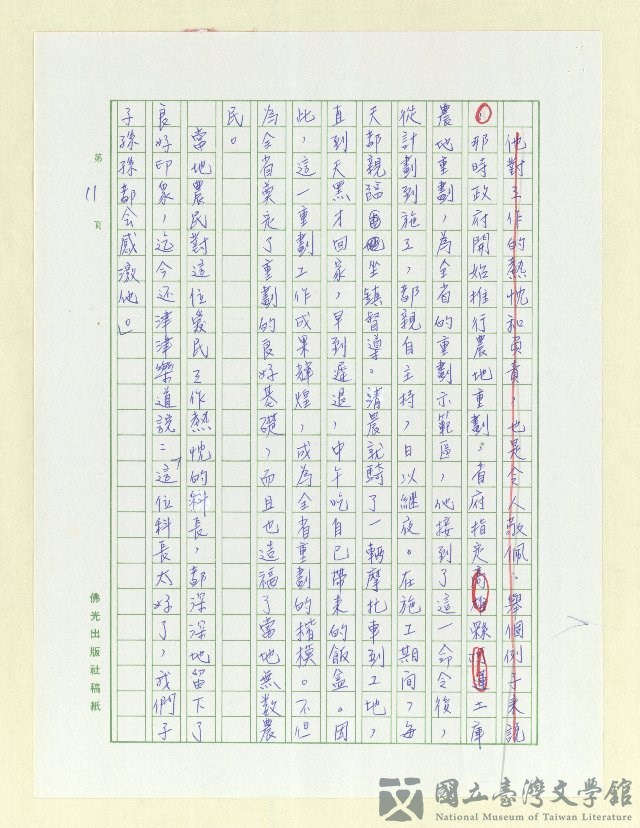 他對工作的熱忱和負責，也是令人敬佩。舉個例子來說
：那時政府開始推行農地重劃，省府指定高雄縣
工庫
農地重劃，為全省的重劃示範區，他接到了這一命令後，
從計劃到施工，都親自主持，日以繼夜。在施工期間，每
天都親臨
坐鎮督導。清晨就騎了一輛摩托車到工地，
直到天黑才回家，早到遲退，中午吃自己帶來的飯盒。因
此，這一重劃工作成果輝煌，成為全省重劃的楷模。不但
為全省奠定了重劃的良好基礎，而且也造福了當地無數農
民。
當地農民對這位農民工作熱忱的科長，都深深地留下了
良好印象，迄今还津津樂道說：「這位科長太好了，我們子
子孫孫都会感激他」。
第11頁
佛光出版社稿紙
國立臺灣文學館
National Museum of Taiwan Literature